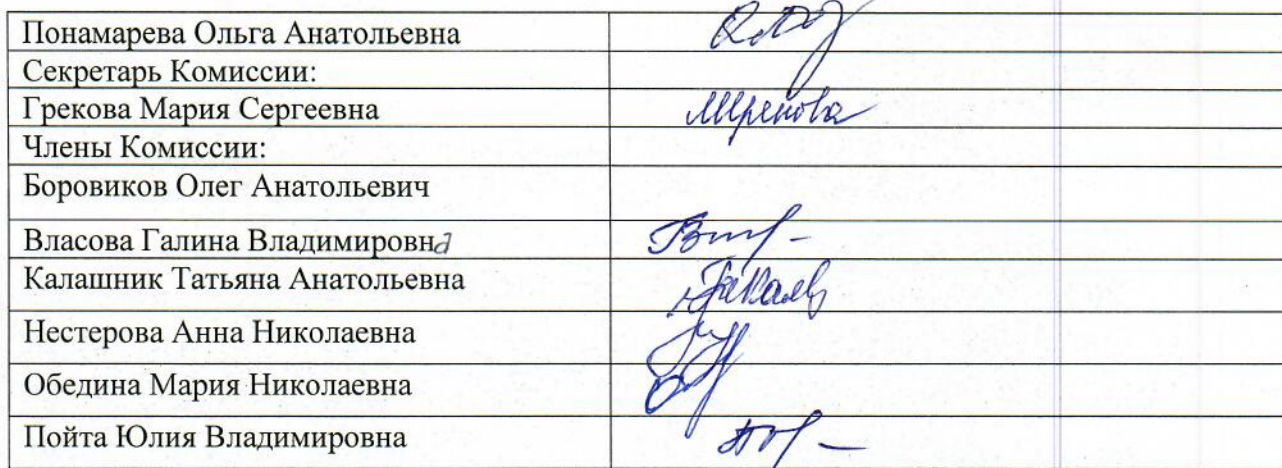 Понамарева Ольга Анатольевна
Секретарь Комиссии:
Грекова Мария Сергеевна
Члены Комиссии:
Боровиков Олег Анатольевич
Власова Галина Владимировна
Калашник Татьяна Анатольевна
Нестерова Анна Николаевна
Обедина Мария Николаевна
Пойта Юлия Владимировна